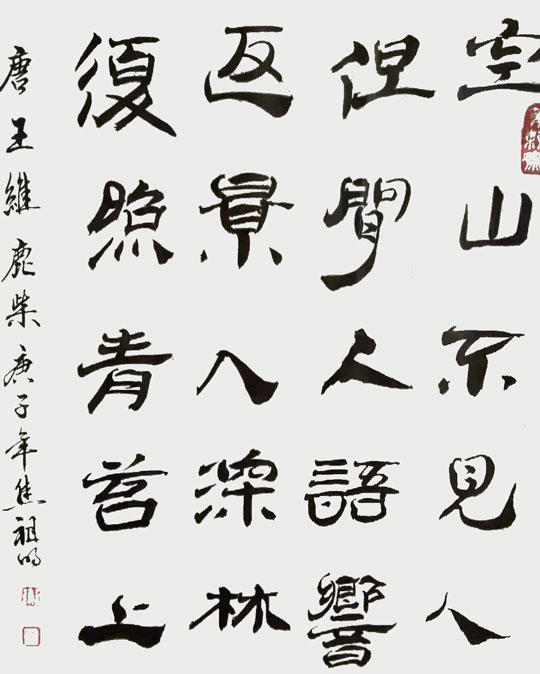 空山不見人
但聞人語響
返景入深林
復照青苔上
唐王維鹿柴庚子年焦祖明